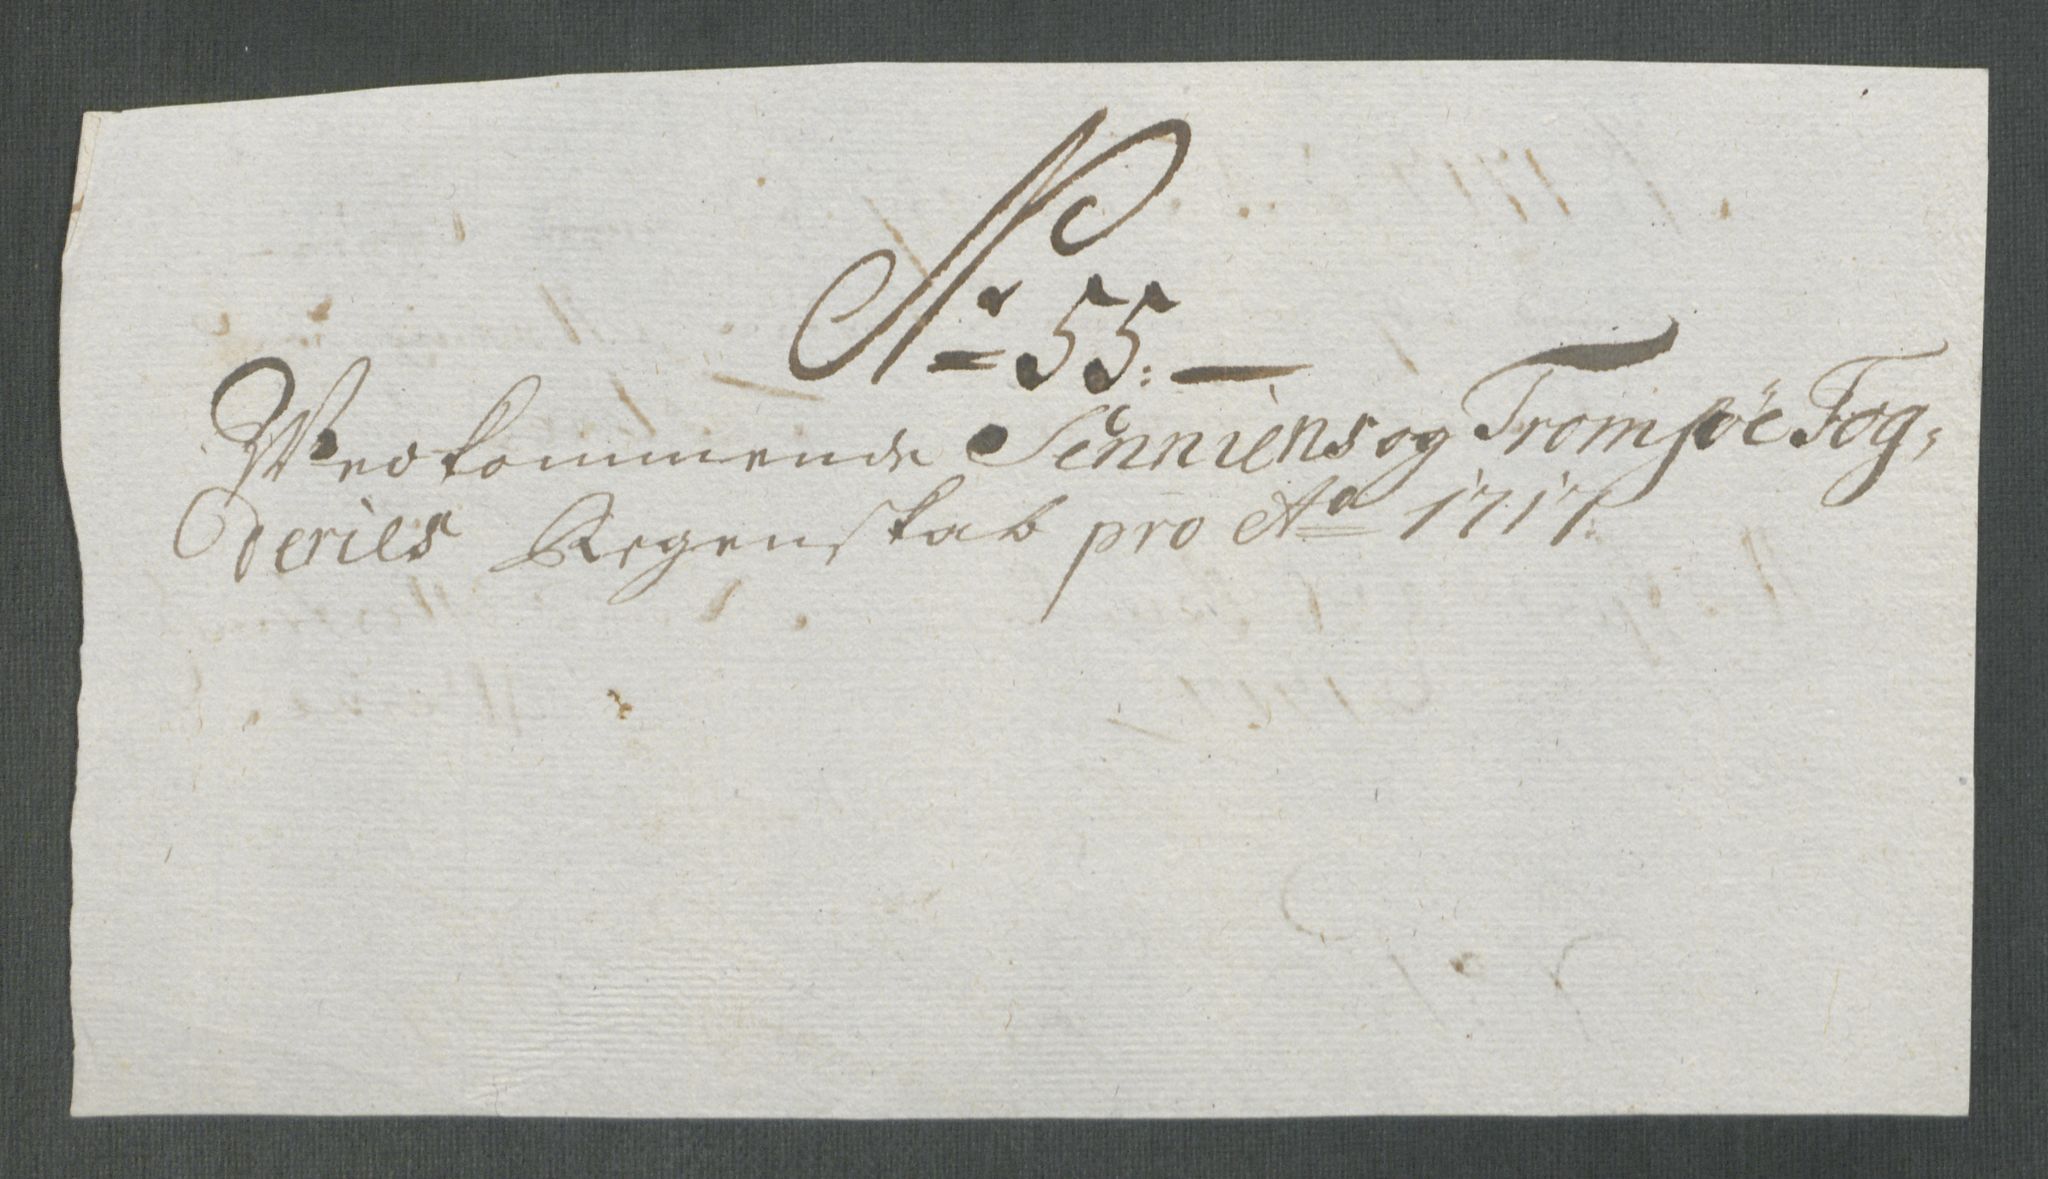 No 55. —
Vedkommende Senniens og Tromsöe Fog,
deries Regenskab pro Ao 1717.